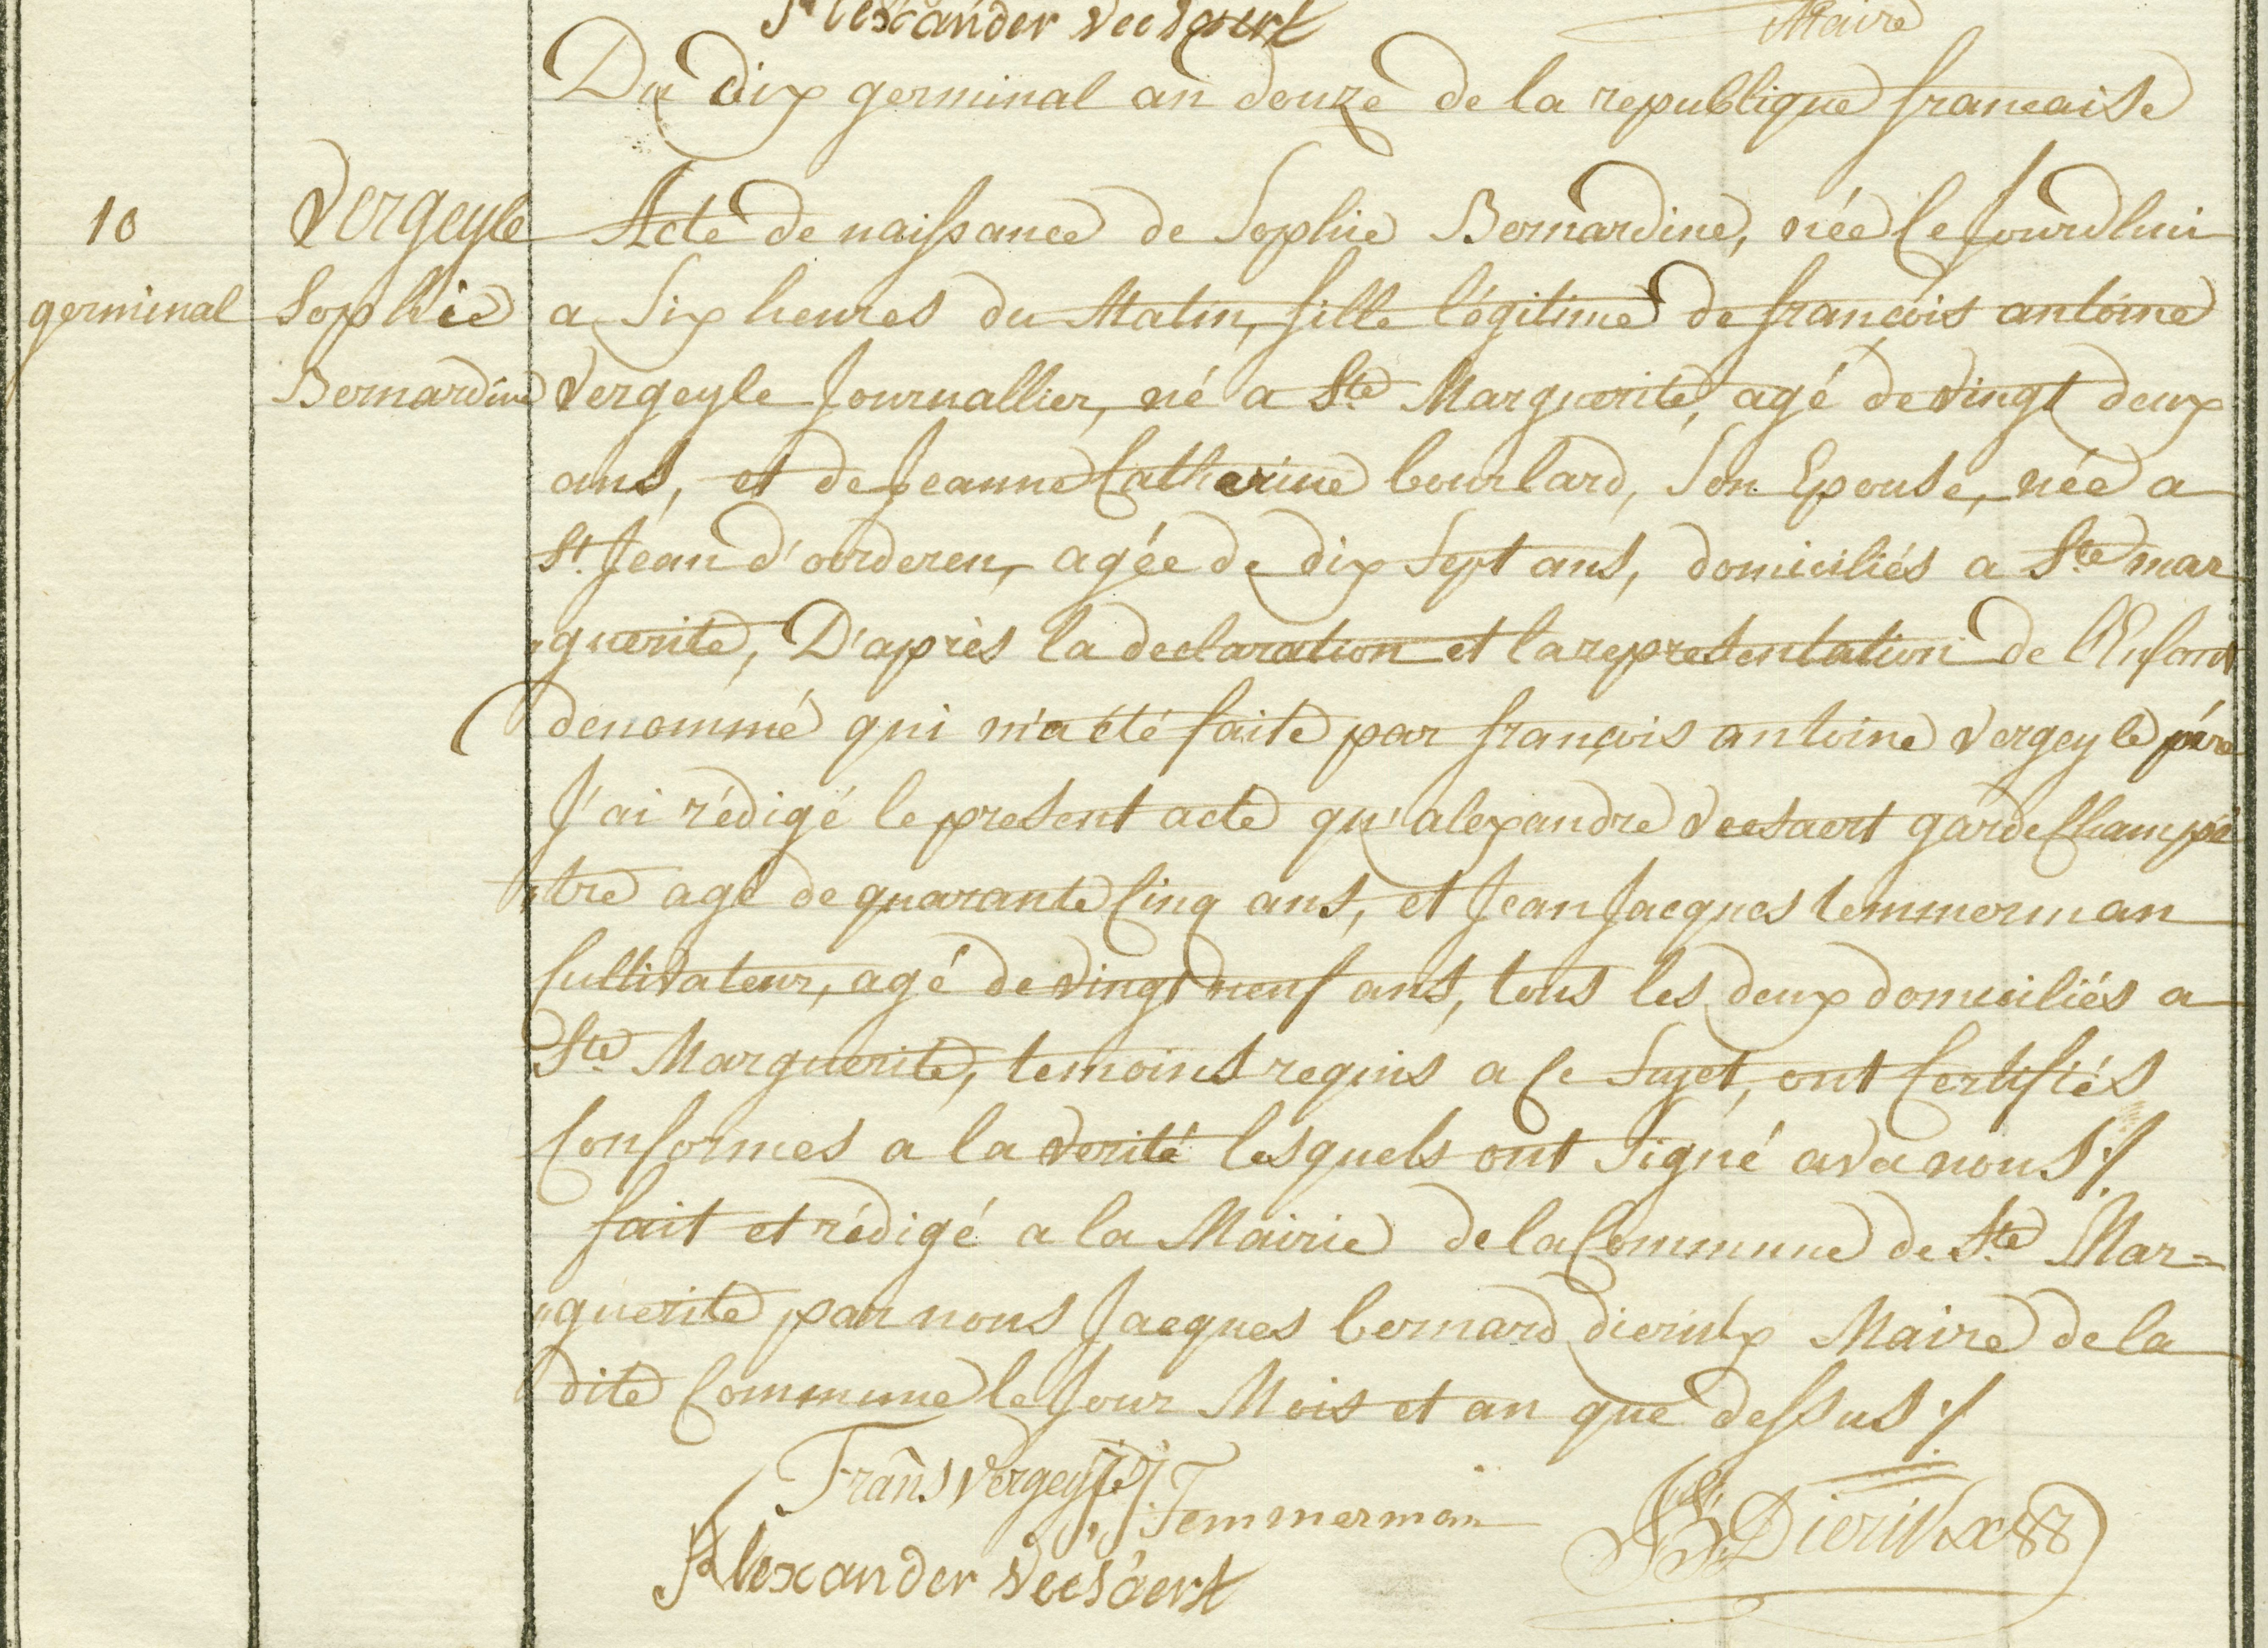 Alexander Veesaert
Maire
Du dix germinal an douze de la republique francaise
10
germinal
Vergeyle
Sophie
Bernardine
Acte de naissance de Sophie Bernardine, née ce Jourdhui
a Six heures du Matin, fille légitime de françois antoine
Vergeyle Journallier, né a Ste Marguerite, agé de vingt deux
ans, et de Jeanne Catherine bourlard, Son Epouse, née a
St. Jean d'oorderen, agée de dix Sept ans, domiciliés a Ste mar
"guerite, D'après la declaration et la representation de l'Enfant
denommé qui m'a été faite par françois antoine Vergeyle pére
J'ai rédigé le present acte qu'alexandre Veesaert garde Champê
"tre agé de quarante Cinq ans, et Jean Jacques temmerman
Cultivateur, agé de vingt neuf ans, tous les deux domiciliés a
Ste Marguerite, temoins requis a Ce Sujet, ont Certifiés
Conformes a la verité lesquels ont Signé ava nous ./.
fait et rédigé a la Mairie de la Commune de Ste Mar=
"guerite par nous Jacques bernard dierickx Maire de la
dite Commune le Jour Mois et an que dessus ./.
Frans Vergeyle
J: J: Temmerman
JB Dierickx
Alexander Veesaert